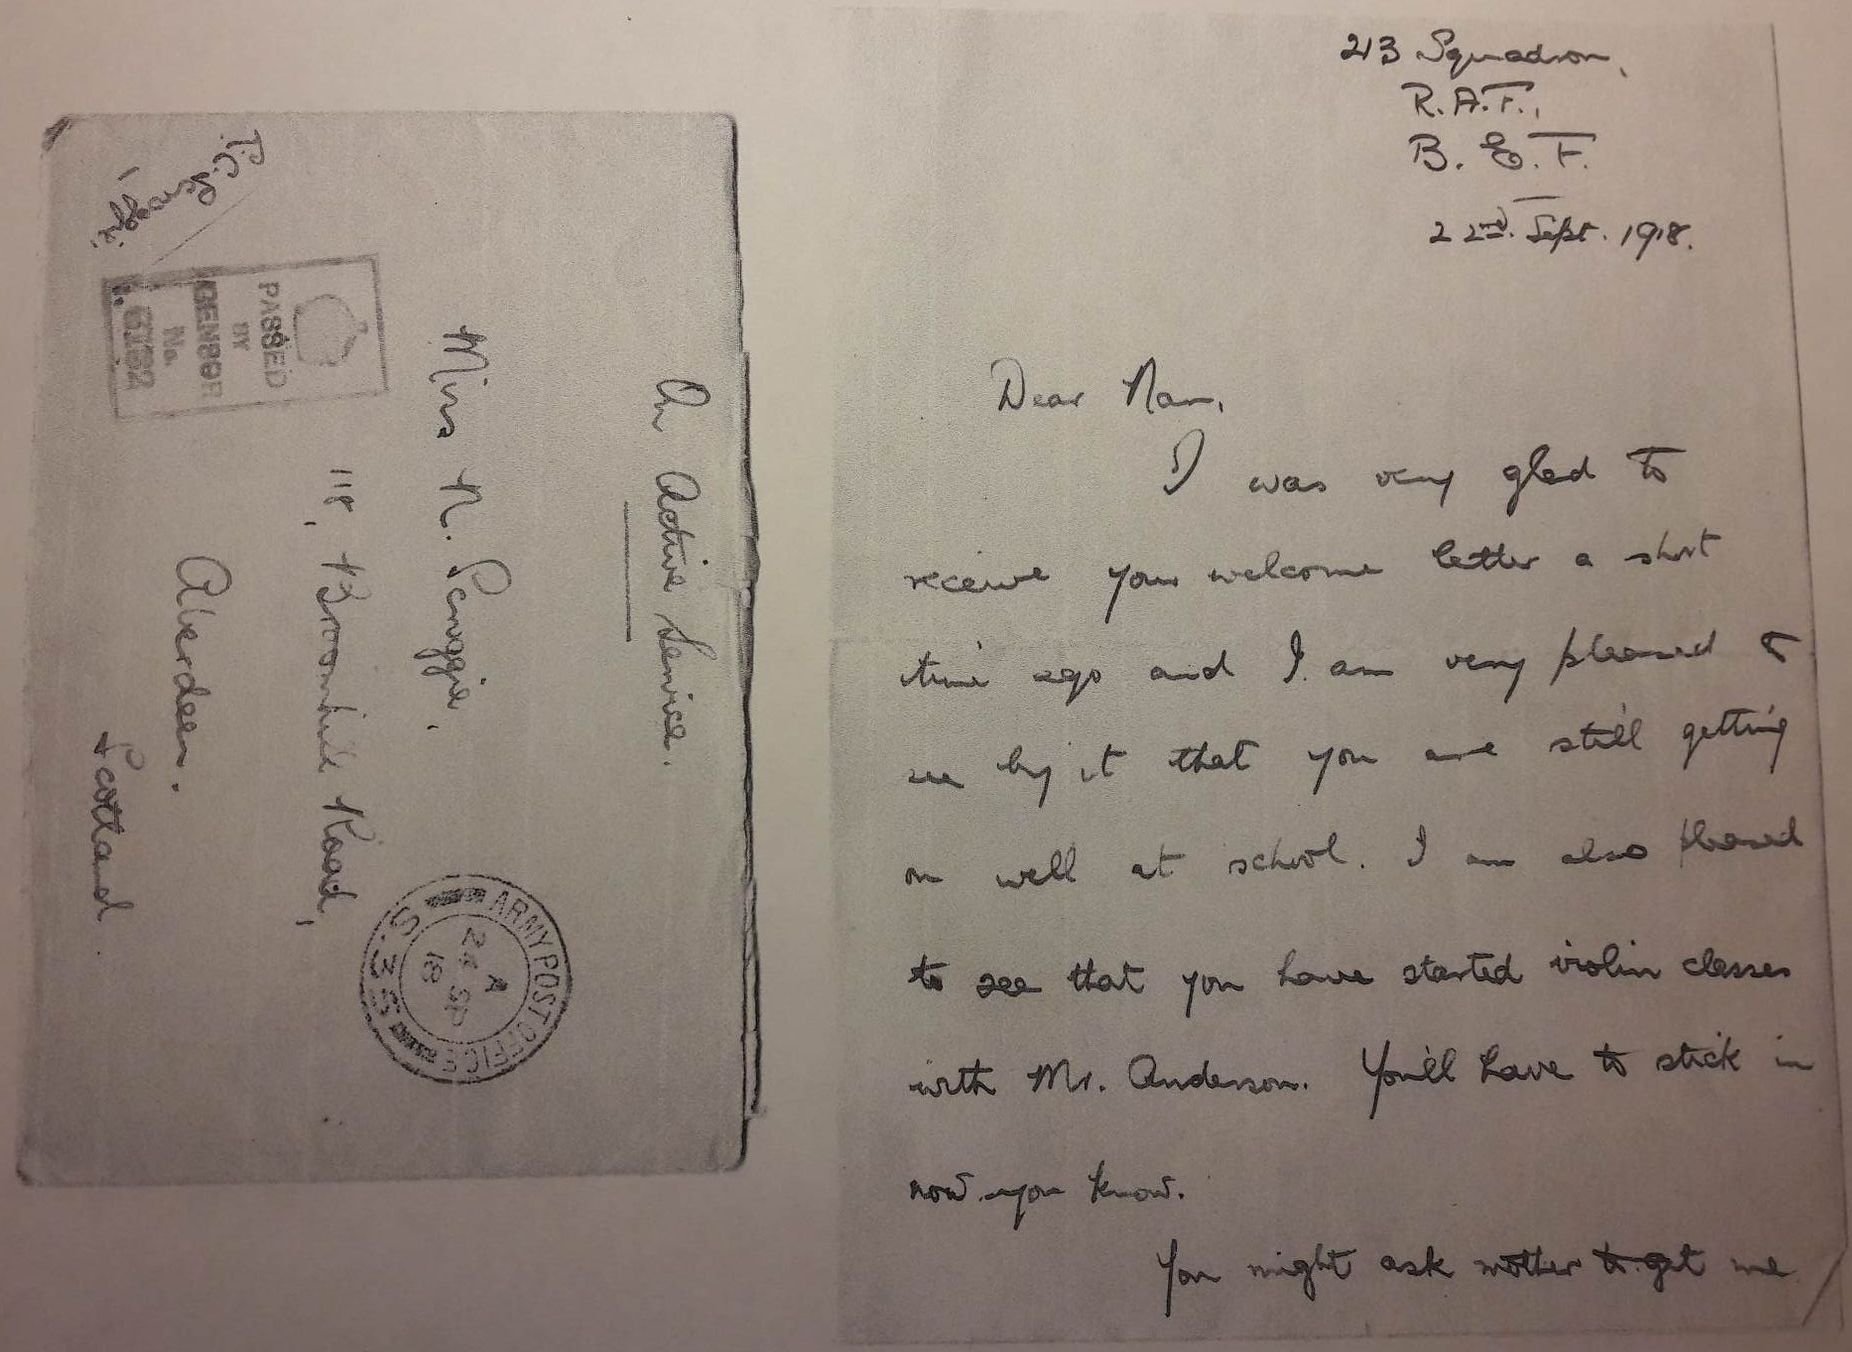 On Active Service.
Miss N. Scroggie,
118, Broomhill Road,
Aberdeen.
Scotland.
PASSED
BY
CENSOR
No.
ARMY POST OFFICE
S. 35
A
24 SP
18
213 Squadron,
R.A.F.,
B.E.F.
22nd. Sept. 1918.
Dear Nan,
I was very glad to
receive your welcome letter a short
time ago and I am very pleased to
see by it that you are still getting
on well at school. I am also pleased
to see that you have started violin classes
with Mr. Anderson. You'll have to stick in
now you know.
You might ask mother to get me